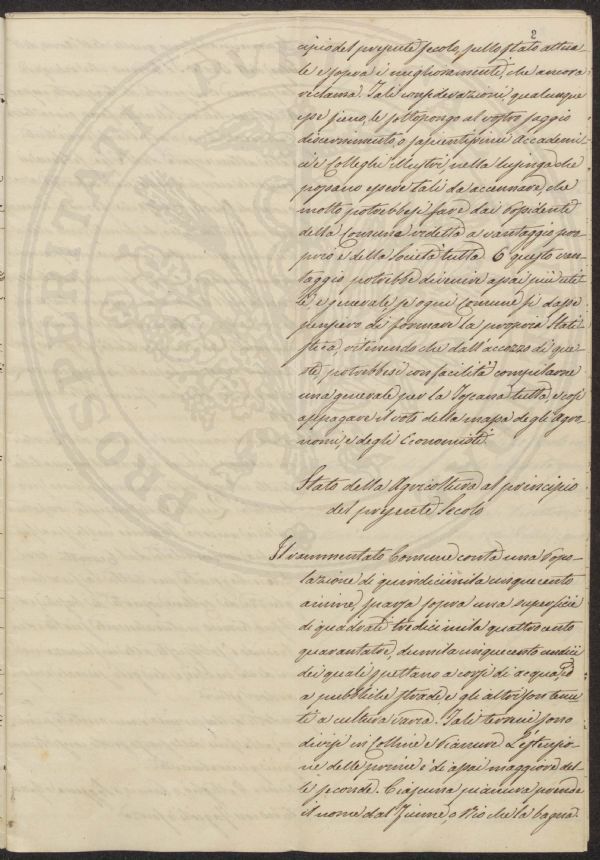 2
cipio del presente secolo, sullo stato attua-
le e sopra i miglioramenti, che ancora
reclama. Tali considerazioni qualunque
esse sieno, le sottopongo al vostro saggio
discernimento, o sapientissimi Accademi-
ci e Colleghi Illustri, nella lusinga che
possano essere tali da accennare, che
molto potrebbesi fare dai Possidenti
della Comune ridetta a vantaggio pro-
prio e della Società tutta. E questo van-
taggio potrebbe divenire assai più uti-
le, e generale se ogni Comune si dasse
pensiero di formare la propria Stati-
stica, ritenendo che dall'accozzo di que-
ste, potrebbesi con facilità compilarne
una generale per la Toscana tutta, e così
appagare il voto della massa degli Agro-
nomi, e degli Economisti.
Stato della Agricoltura al principio
del presente Secolo
Il rammentato Comune conta una Popo-
lazione di quindicimila cinquecento
anime, sparsa sopra una superficie
di quadrati tredicimila quattrocento
quarantatre, dumila cinquecento undici
dei quali spettano a corsi di acqua, ed
a pubbliche strade e gli altri son tenu-
ti a cultura varia. Tali terreni sono
divisi in Colline e Pianure. L'estensio-
ne delle prime è di assai maggiore del-
le seconde. Ciascuna pianura prende
il nome dal Fiume, o Rio che la bagna.
PROSPERITATI PUB